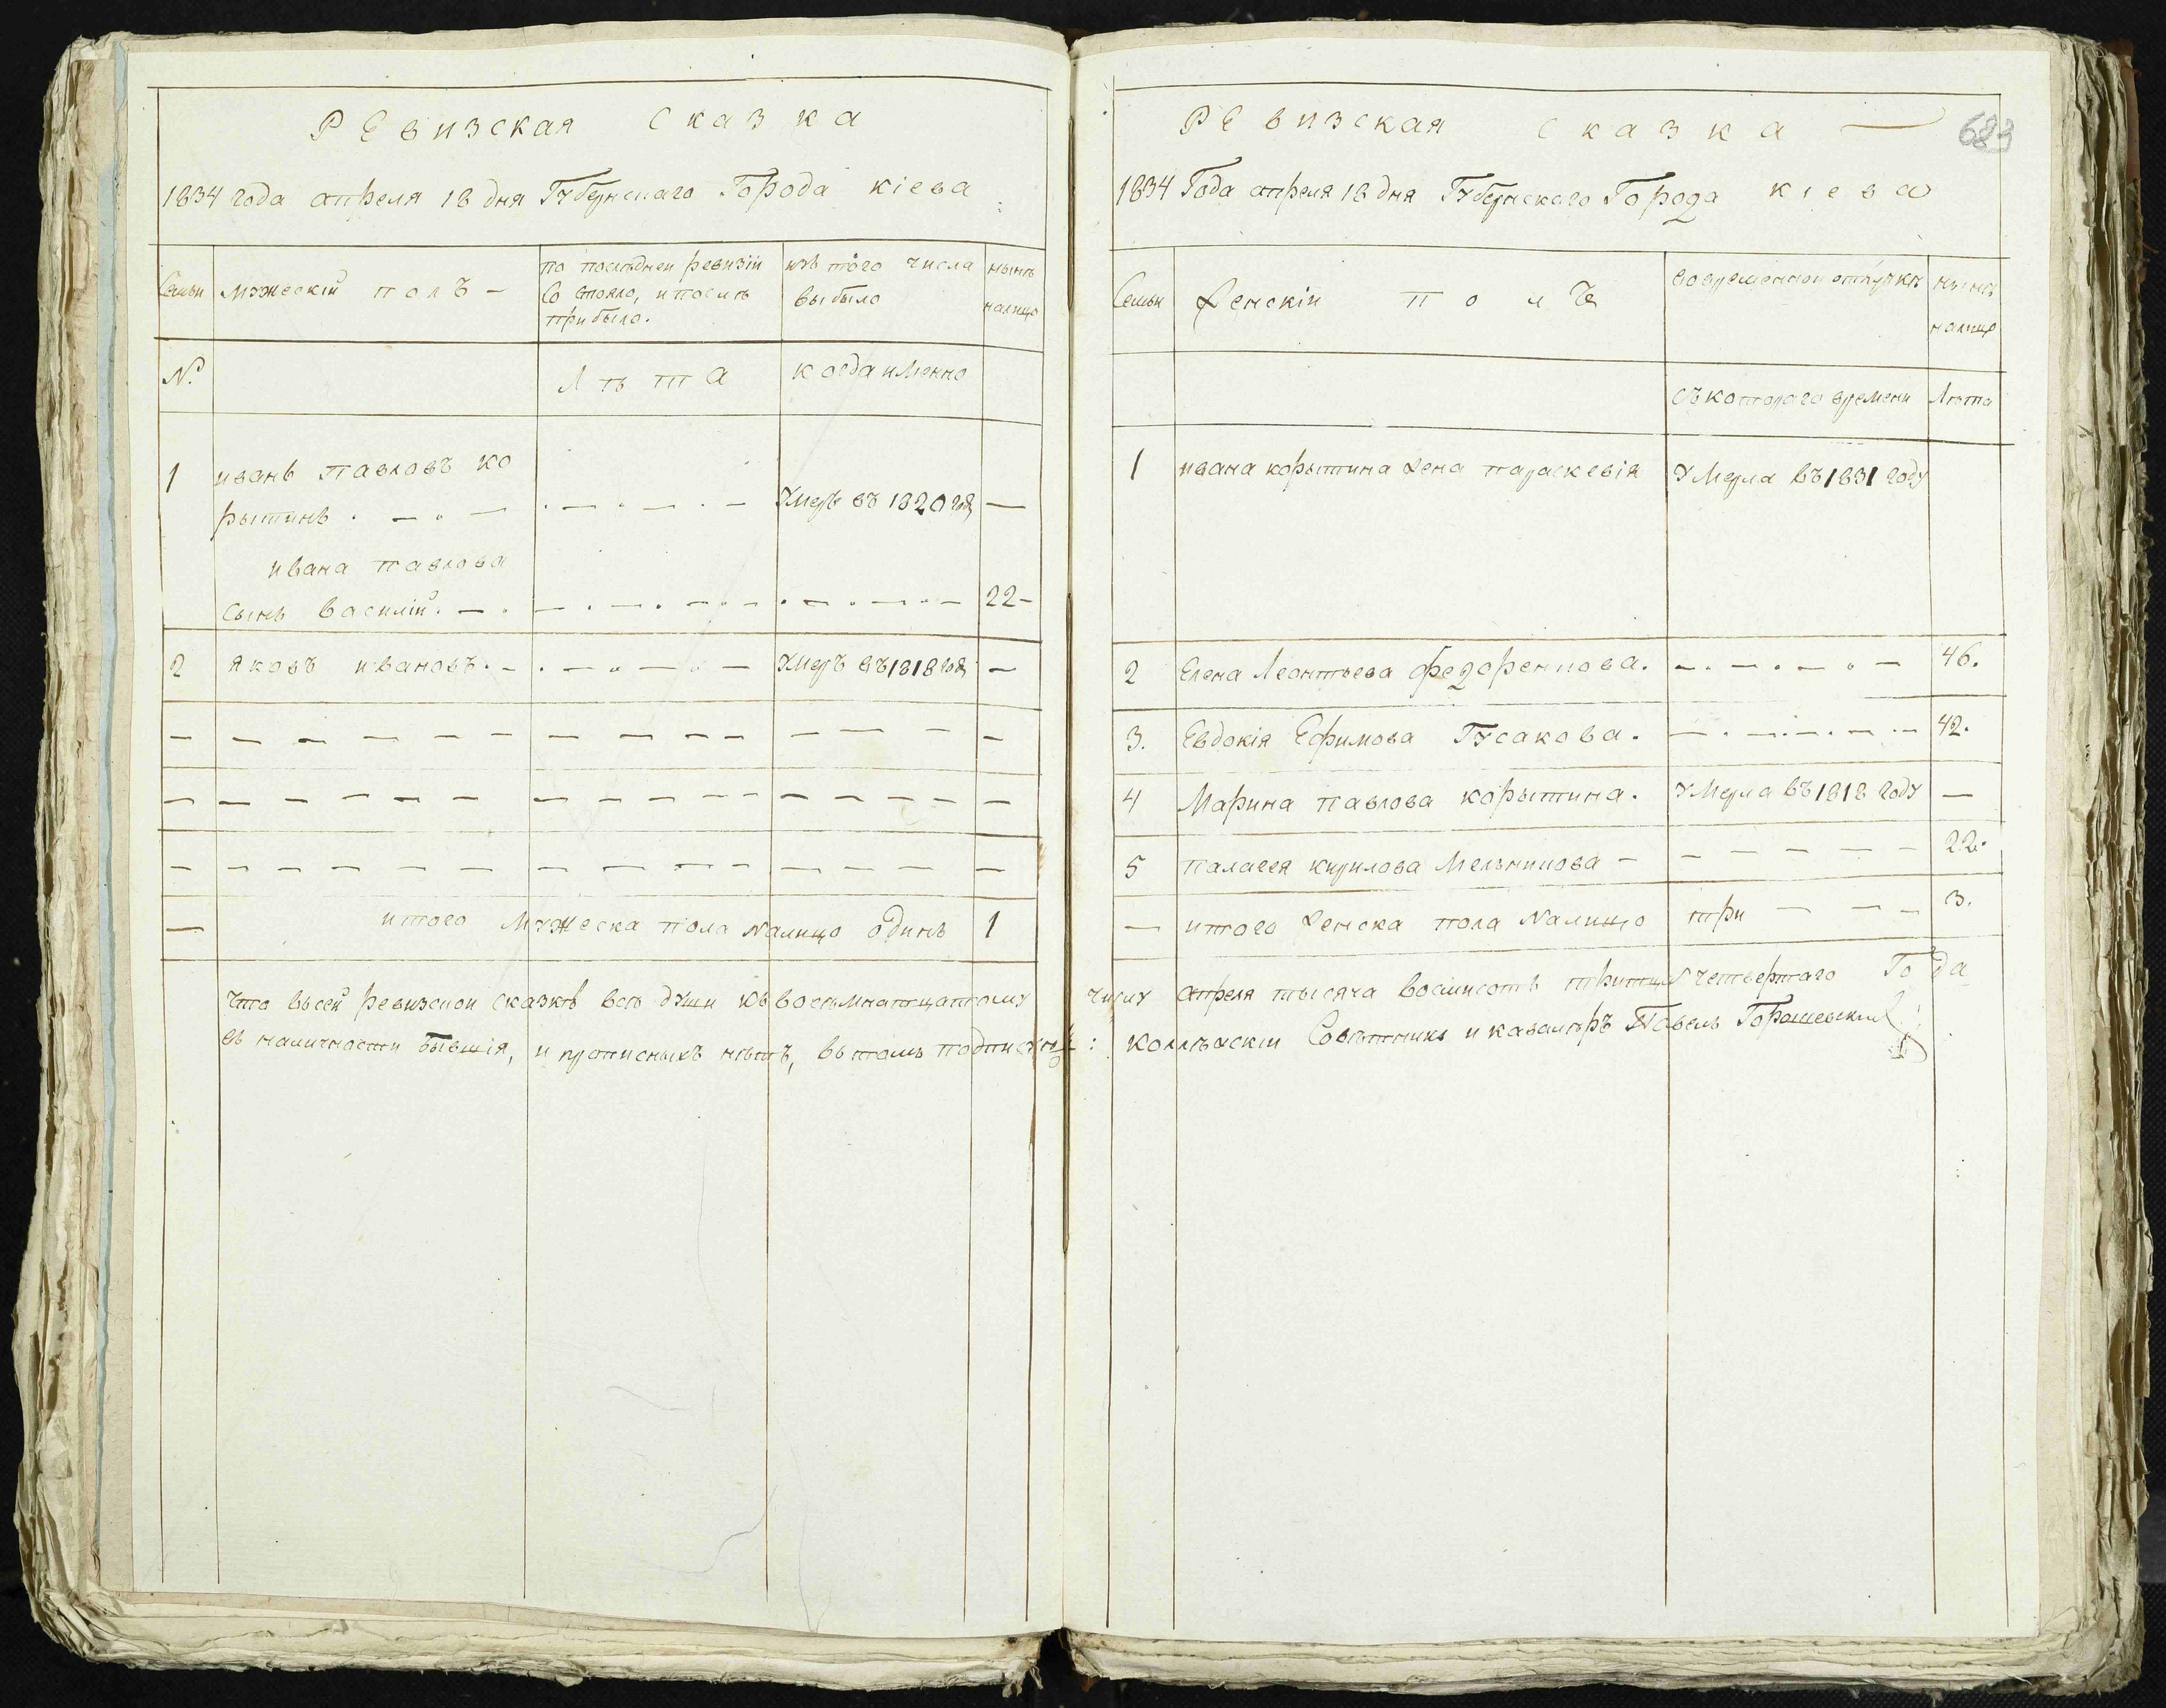 РЕвизская Сказка
1834 года апреля 18 дня Губернскаго Города Кіева
Семьи
Мужескій полъ -
по последней ревизіи
Состояло, и после
прибыло.
изъ того числа
выбыло
ныне
налицо
№
Лѣта
когда именно
1 иванъ павловъ ко
рытинъ . - . - Умеръ въ 1820 год -
ивана павлова
сынъ василій . - 22 -
2 яковъ ивановъ . - Умеръ въ 1818 год -
итого мужеска пола налицо одинъ 1
Что всей ревизской сказкѣ всѣ души къ восемнатцатому
въ наличности бывшія, и прописныхъ нѣтъ, въ томъ подписуюсь
683
РЕвизская сказка —
1834 Года апреля 18 дня Губернскаго Города Кіева
Семьи
Женскій полъ
во временной отлучкѣ
ныне
налицо
съ котораго времени
Лѣта
1 ивана корытина жена параскевія Умерла въ 1831 году
2 Елена Леонтьева федоренкова . - 46.
3. Евдокія Ефимова Гусакова . - 42.
4 Марина павлова корытина . Умерла въ 1818 году -
5 палагея кирилова Мельникова - 22.
- итого женска пола налицо три - 3.
числу апреля тысяча восмисотъ тритцать четвертаго Года
: коллежскій Советникъ и кавалеръ Павелъ Горашевскій